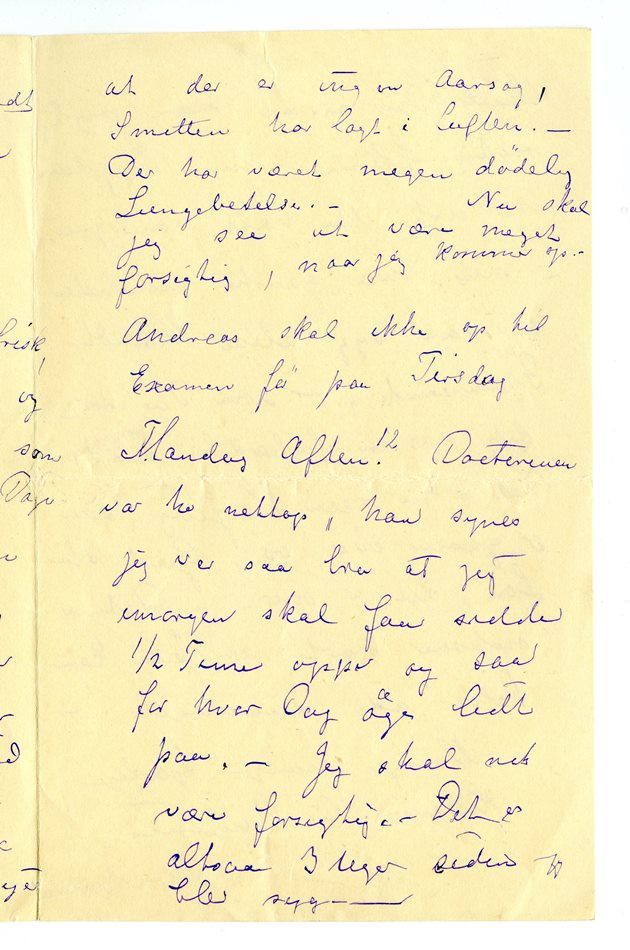 at der er ingen Aarsag,
Smitten har lagt i Luften. —
Der har været megen dødelig
Lungebetelse. — Nu skal
jeg see at være meget
forsigtig, naar jeg kommer op. —
Andreas skal ikke op til
Examen før paa Tirsdag
Mandag Aften. 12 Doctoren
var her nettop, han synes
jeg var saa bra at jeg
imorgen skal faa sidde
1/2 Time oppe og saa
for hver Dag øge lidt
paa. — Jeg skal nok
være forsigtig. — Det er
altsaa 3 Uger siden
blev syg —
isk,
og
som
Dage